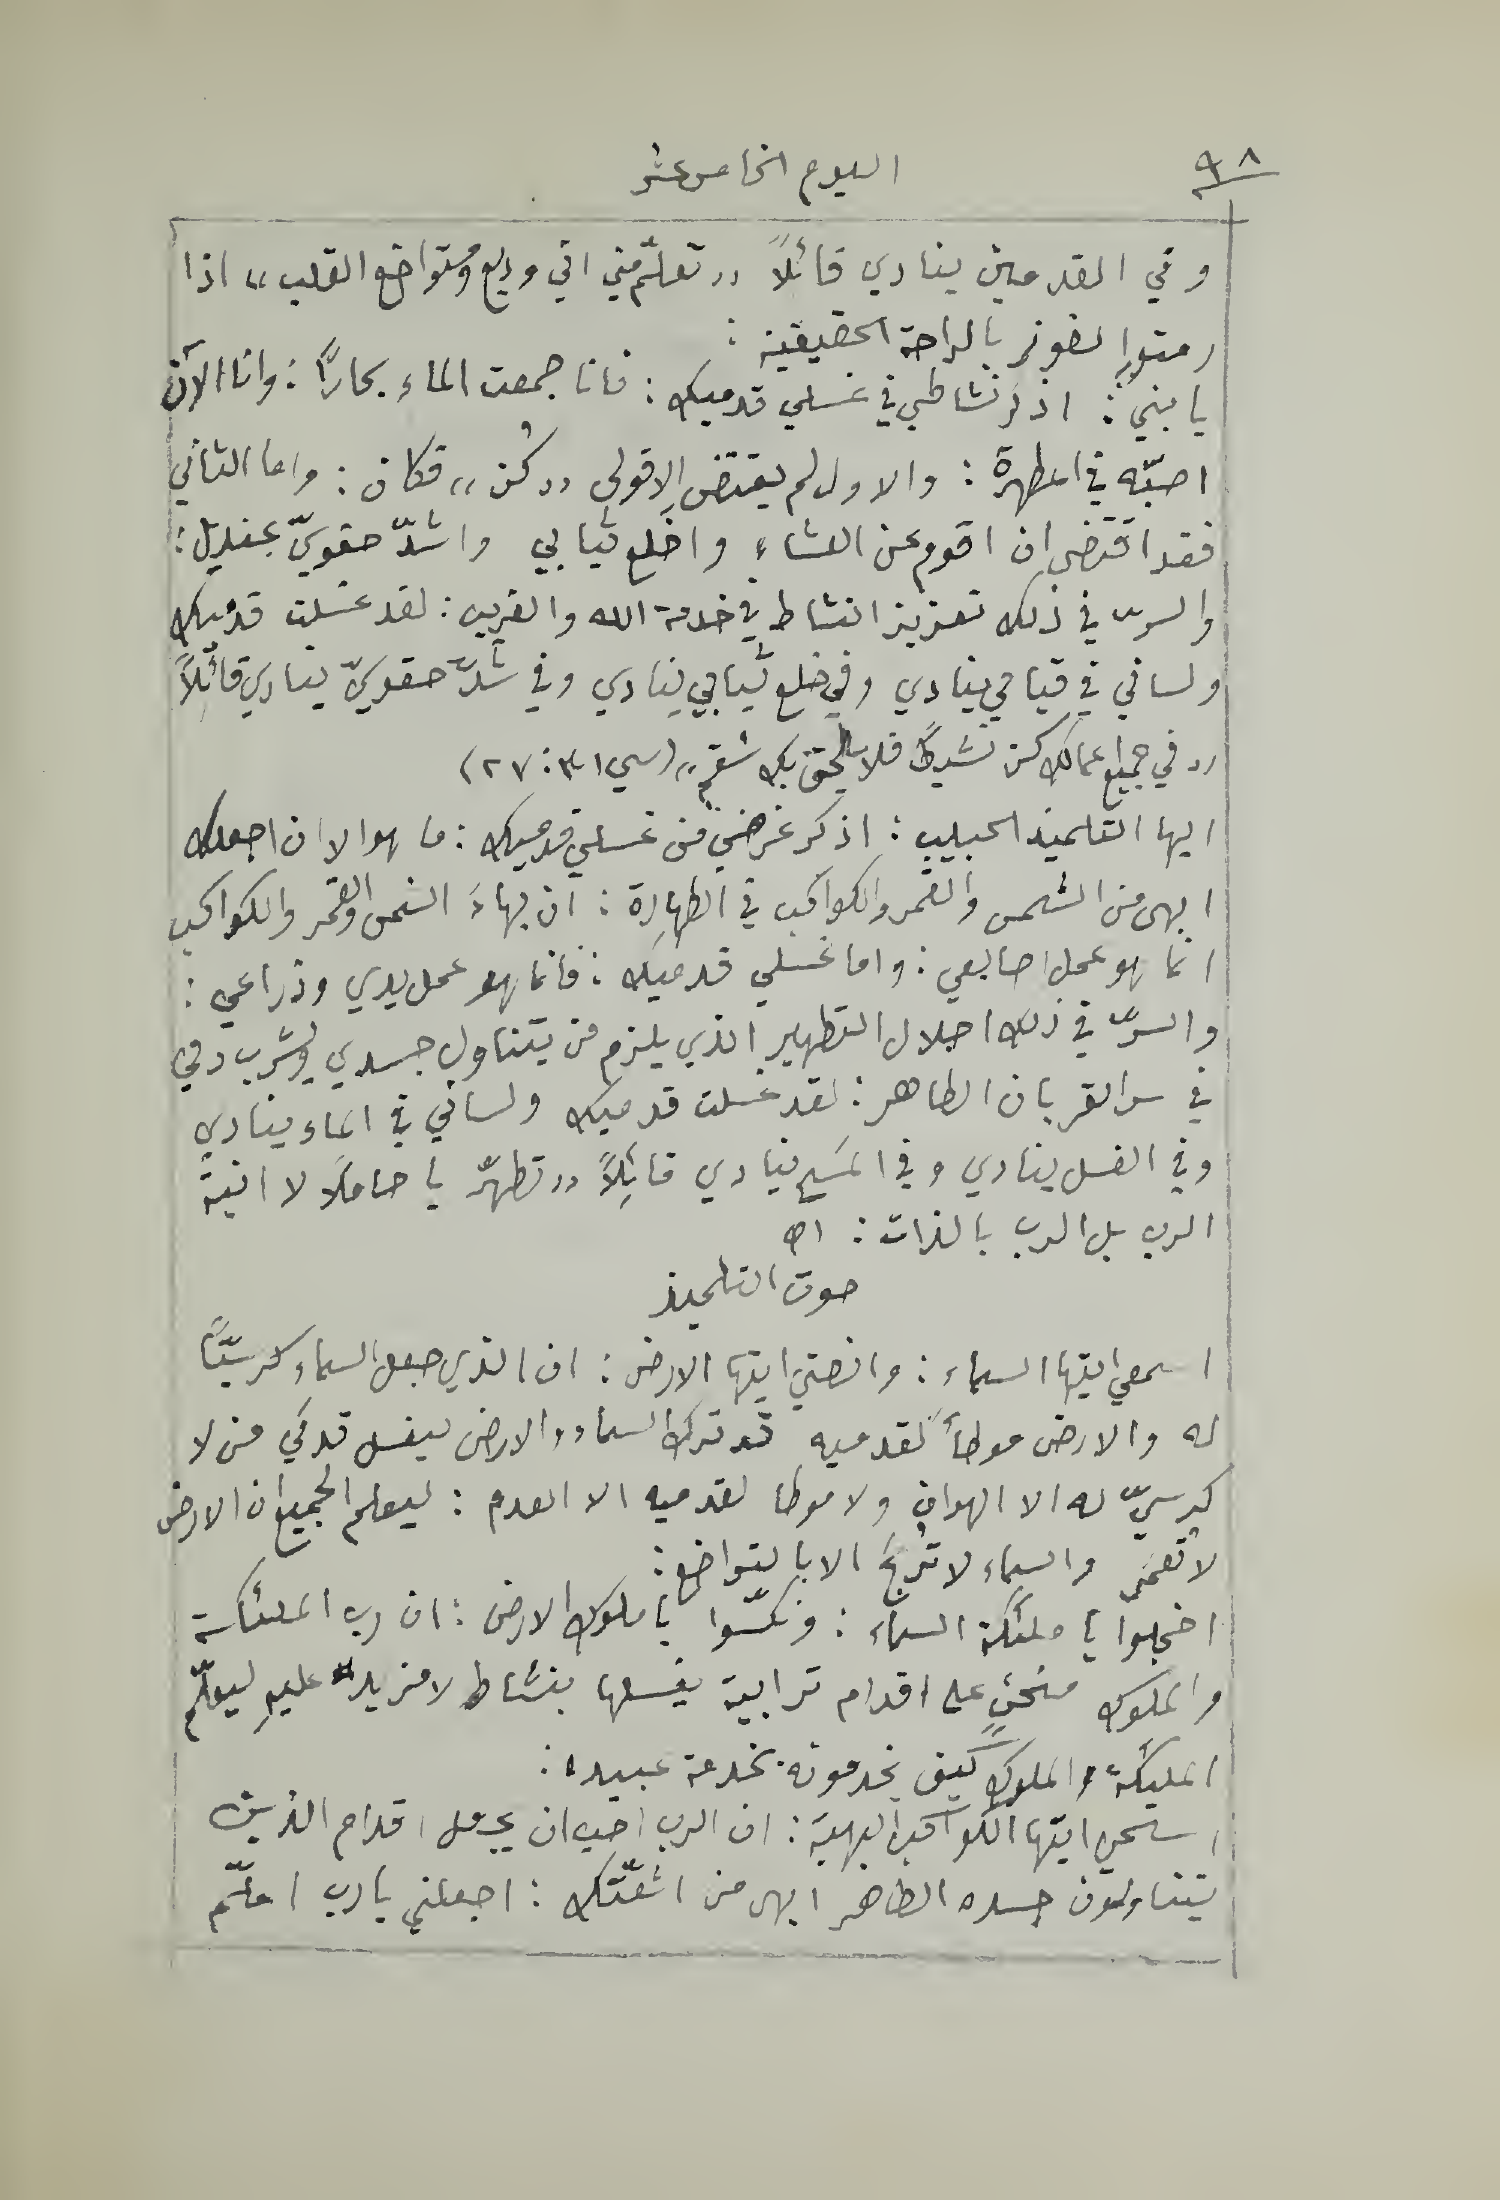 ٩٨
اليوم الخامس عشر
وفي القدمين ينادي قائلاً «تعلّم مني اني وديع ومتواضع القلب» اذا
رمتوا لفوز بالراحة الحقيقية :
يا بنيّ : اذكر نشاطي في غسلي قدميك : فانا جمعت الماء بحارًا : وانا الآن
اصبّه في المطهرة : والاول لم يقتض الا قولي «كن» فكان : واما الثاني
فقد اقتضى ان اقوم عن العشاء واخلع ثيابي واشدّ حقويّ بمنديل :
والسرّ في ذلك تعزيز النشاط في خدمة الله والقريب : لقد غسلت قدميك
ولساني في قيامي ينادي وفي خلع ثيابي ينادي وفي شدّ حقويّ ينادي قائلاً
«في جميع اعمالك كن نشيطًا فلا يلحق بك سقم» (سي ٣١ : ٢٧)
ايها التلميذ الحبيب : اذكر غرضي من غسلي قدميك : ما هو الا ان اجعلك
ابهى من الشمس والقمر والكواكب في الطهارة : ان بهاءَ الشمس والقمر والكواكب
انما هو عمل اصابعي : واما غسلي قدميك : فانما هو عمل يدي وذراعي :
والسرّ في ذلك اجلال التطهير الذي يلزم من يتناول جسدي ويشرب دمي
في سر القربان الطاهر : لقد غسلت قدميك ولساني في الماء ينادي
وفي الغسل ينادي وفي المسح ينادي قائلاً «تطهّر يا حاملاً لا انية
الرب بل الرب بالذات : اه
صوت التلميذ
اسمعي ايتها السماء : وانصتي ايتها الارض : ان الذي جعل السماء كرسيًّا
له والارض موطأً لقدميه قد ترك السماء والارض ليغسل قدمَي من لا
كرسيّ له الا الهوان ولا موطا لقدميه الا العدم : ليعلم الجميع ان الارض
لا تُعمَر والسماء لا تُربَح الا بالتواضع :
اخجلوا يا ملئكة السماء : ونكسّوا يا ملوك الارض : ان رب الملئكة
والملوك منحنٍ على اقدام ترابية يغسلها بنشاط لا مزيد عليهِ ليعلّم
المليكة والملوك كيف يخدمونه بخدمة عبيده :
استحي ايتها الكواكب البهية : ان الرب احب ان يجعل اقدام الذين
يتناولون جسده الطاهر ابهى من اشعّتك : اجعلني يا رب اعلّم